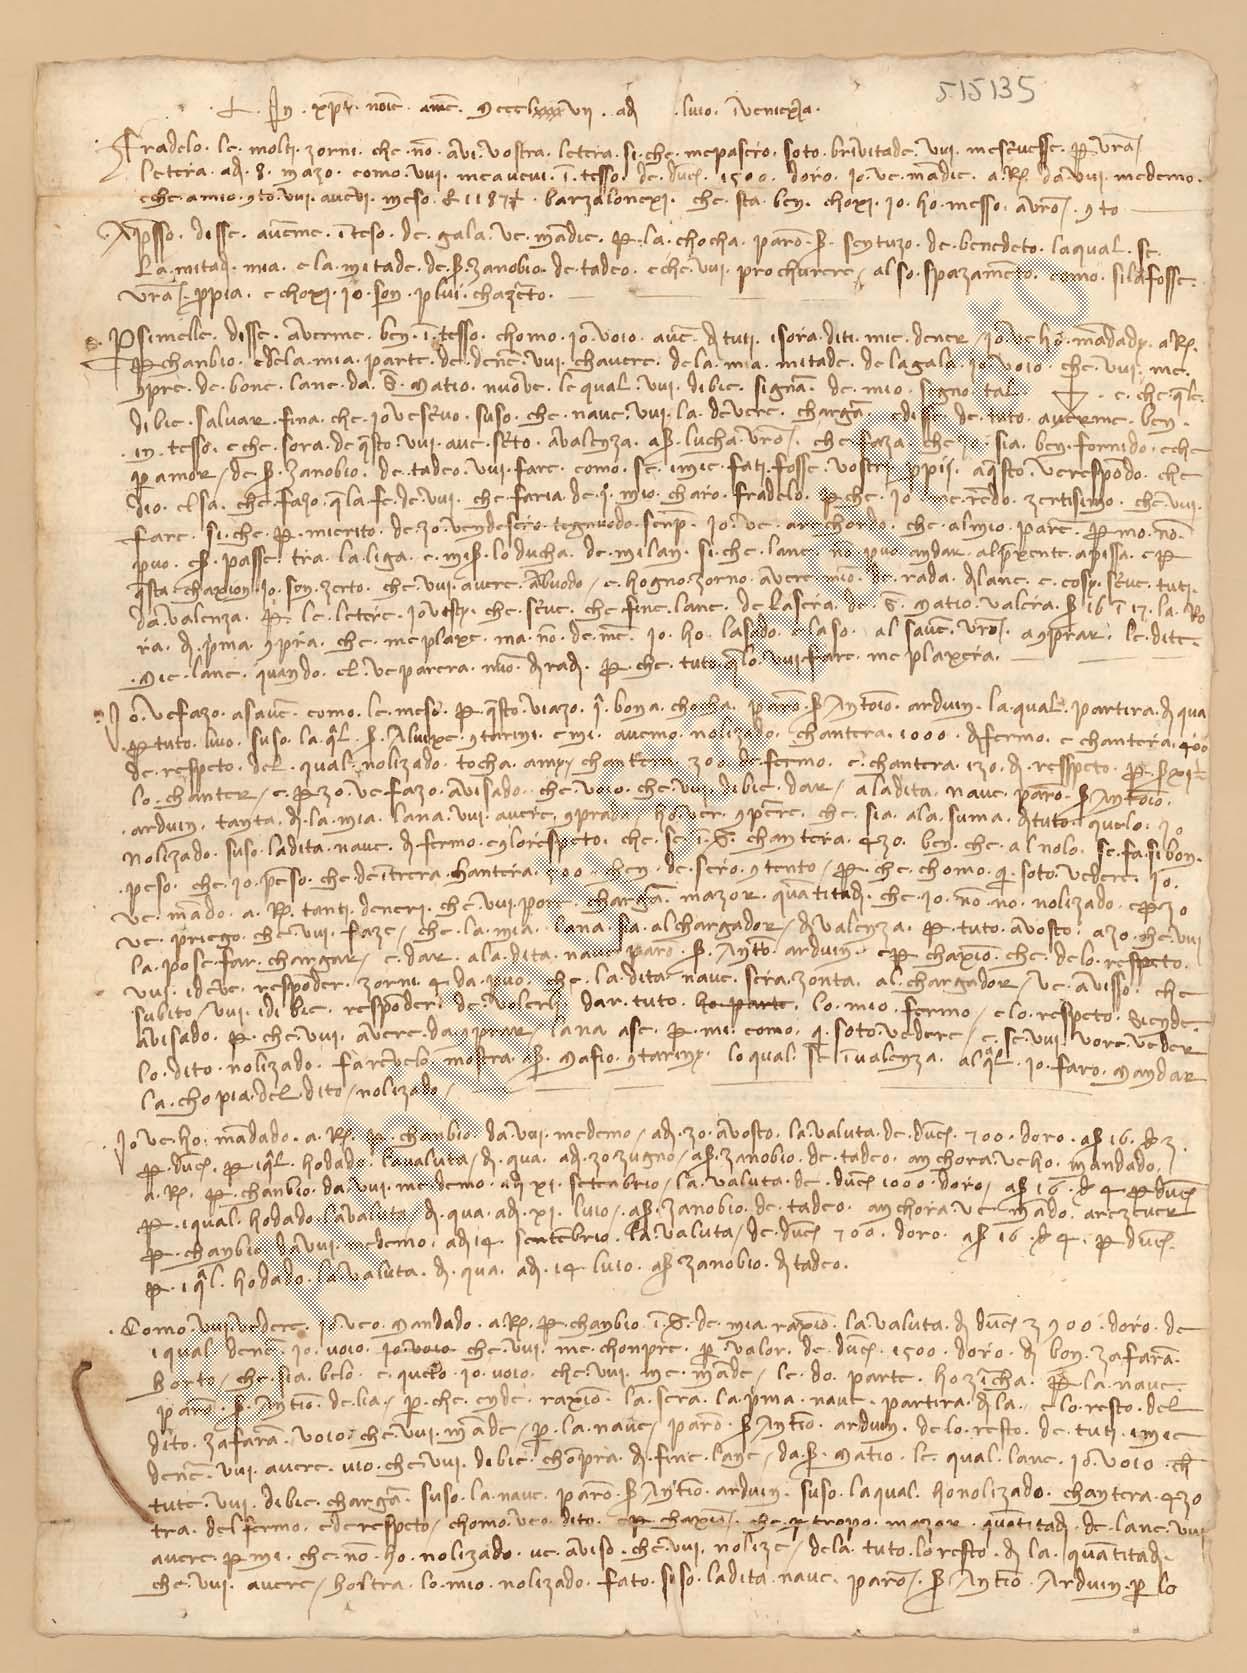 515135
In xpi. noīe. amē. Mcccclxxxxvii. adj. luio. ī veniexia.
Fradelo. le. molti. zorni. che. nō. avi. vostra. letera. si. che. me pasero. soto. brīvitade. vui. me scrivesse. p vrā
letera. adj. 8. mazo. como. vui. me avevi. ī tesso. de. duc. 1500. doro. io. ve. mādie. a. Rz. da. vui. medemo.
eche. amio. 9to. vui. avevi. meso. 1187. barzalonexi. che. sta. ben. choxi. io. ho. messo. a vrō. 9to
Apsso. disse. avēme. īteso. de. gala. ve. mādie. p. la. chocha. parō. s. sentuzo. de. benedeto. la qual. se.
la. mitad. mia. e la. mitade. de. s. zanobio. de. tadeo. eche. vui. prochurere. al so. spazamēto. como. si la fosse.
vrā. ppia. e choxi. io. son. plui. chazēto.
Psimelle. disse. averme. ben. ī tesso. chomo. io. voio. avē. d tuti. i sora diti. mie. dener. io. ve hō. mādady. a Rz.
p chanbio. e dela. mia. parte. de. denē. vui. chavere. de la. mia. mitade. de la gala. io. voio. che. vui. me.
9pre. de. bone. lane. da. s. Matio. nuove. le qual. vui. dibie. signā. de. mio. segno. tal. e. che. qle.
dibie. salvar. fina. che. io ve scrivo. suso. che. nave. vui. la. devere. chargā. edisse. de. tuto. averme. ben.
in. tesso. eche. sora. de qsto. vui. ave. scrito. a valenza. a s. lucha. vrō. che. faza. che. io. sia. ben. fornido. eche
p amor. de. s. zanobio. de. tadeo. vui. fare. como. se. i mie. fati. fosse. vostri. ppii. a qsto. ve respōdo. che
dio. el sa. che. fazo. qla. fe. de. vui. che. faria. de. j. mio. charo. fradelo. p che. io me. rēdo. zertisimo. che. vui.
fare. si. che. p. mierito. de. zo. ve ndesero. tegnudo. senp. io. ve. arechordo. che. al mio. parē. p mo. nō.
puo. ess. passe. tra. la. liga. e. mis. lo ducha. de. milan. si. che. lane. nō. puo. andar. al prexente. a pissa. e p
qsta. chaxion. io. son. zerto. che. vui. avere. abuodo. e. hogno. zorno. avere. mio. de. rada. d lane. e. cosy. scrive. tuti.
da. valenza. p. le. letere. io vesy. che. scrive. che. fine. lane. de la sera. de. s. Matio. valera. s 16 ī 17. la. Ro
ra. d. pma. 9pra. che. me plaxe. ma. nō. de. mē. io. ho. lasado. e laso. al savē. vrō. a 9prar. le. dite.
Mie. lane. quando. el. ve parera. nuō. d rad. p che. tuto. qlo. vui fare. me plaxera.
Io. ve fazo. a savē. como. le. meso. p. qsto. viazo. j. bona. chocha. parō. s Antoio. arduin. la. qual. partira. d qua
p tuto. luio. suso. la. ql. s. Aluixe. 9tarini. e mi. avemo. nolizado. chantera. 1000. d fermo. e chantera. 400
de. respeto. del. qual. nolizado. tocha. amy. chantera. 300. de. fermo. e. chantera. 120. d. resspeto. p. s xi
lo. chanter. e. p zo. ve. fazo. avisado. che. voio. che. vui. dibie. dar. a la dita. nave. parō. s Antoio.
arduin. tanta. d. la. mia. lana. vui. avere. 9prado. ho. ver. 9pēre. che. sia. a la. suma. d tuto. quelo. io
nolizado. suso. la dita. nave. d. fermo. e 9 lo respeto. che. se. ī. s. chantera. 420. ben. che. al nolo. se. fa. si bon.
peso. che. io. pēso. che. de ītrera. chantera. 500. ben. de. sero. 9tento. p. che. chomo. q. soto. vedere. io.
ve. mādo. a. Rz. tanti. deneri. che. vui. pore. chargā. mazor. quātitad. che. io. nō. no. nolizado. e p zo
ve. priego. che. vui. faze. che. la. mia. lana. sia. al chargador. d valenza. p. tuto. avosto. azo. che. vui
la. pose. far. chargar. e. dar. a la. dita. nave. parō. s. Antō. arduin. e p chaxiō. che. de lo. respeto.
vui. i deve. respōder. zorni. 4 da. puo. che. la. dita. nave. sera. zonta. al. chargador. ve. avisso. che
subito. vui. i di bie. respōder. de. volerli. dar. tuto. lo parte. lo. mio. fermo. e lo. respeto. siende.
avisado. p. che. vui. avere. da 9prar. lana. ase. p. mi. como. q. soto. vedere. e. se. vui. vore. veder
lo. dito. nolizado. farevelo. mostra. a s. Mafio. 9tariny. lo qual. se. ī valenza. al ql. io. faro. Mandar
la. chopia. del. dito. nolizado.
Io ve. ho. mādado. a. Rz. p. chanbio. da. vui. medemo. adj. 20. avosto. la. valuta. de. duc. 700. doro. a s 16. d 3.
p. duc. p. iql. ho dado. la valuta. d. qua. adj. 20 zugno. a s. zanobio. de. tadeo. anchora. ve ho. mandado.
a. Rz. p. chanbio. da. vui. medemo. adj xi. setenbrio. la. valuta. de. duc 1000. doro. a s 16. d 4. p duc
p. iqual. ho dado. la valuta. d. qua. adj. xi. luio. a s. zanobio. de. tadeo. anchora. ve. mādo. arezever
p. chanbio. da vui. medemo. adj 14. sentēbrio. la. valuta. de. duc 700. doro. a s 16. d 4. p duc.
p. iql. ho dado. la. valuta. d. qua. adj. 14 luio. a s zanobio. d tadeo.
Como. vui. vedere. io. veo. Mandado. a. Rz. p chanbio. ī. s. de. mia. raxiō. la. valuta. d duc 3900. doro. de
i qual. denē. io. voio. io. voio che. vui. me. chonpre. p. valor. de. duc. 1500. doro. d bon. zafarā.
horto. che. sia. belo. e. queto. io. voio. che. vui. me. māde. le. do. parte. ho zīcha. p la. nave.
parō. s. Antiō. de lia. p. che. ende. raxiō. la. sera. la. pma. nave. partira. d la. e lo. resto. del
dito. zafarā. voio. che. vui. māde. p. la. nave. parō. s Antiō. arduin. de lo. resto. de. tuti. i mie
denē. vui. avere. vio. che. vui. dibie. chōpra. d. fine. lane. da. s. Matio. le. qual. lane. io. voio. che
tute. vui. dibie. chargā. suso. la. nave. parō. s Antiō. arduin. suso. la qual. ho nolizado. chantera. 420
tra. del fermo. e de respeto. chomo. veo. dito. e p chaxiō. che. p tropo. mazor. quātitad. de. lane. vui
avere. p mi. che. nō. ho. nolizado. ve. aviso. che. vui. nolize. de la. tuto. lo resto. d la. quātitad.
che. vui. avere. hostra. lo. mio. nolizado. fato. suso. la dita. nave. parō. s Antiō. Arduin. p lo